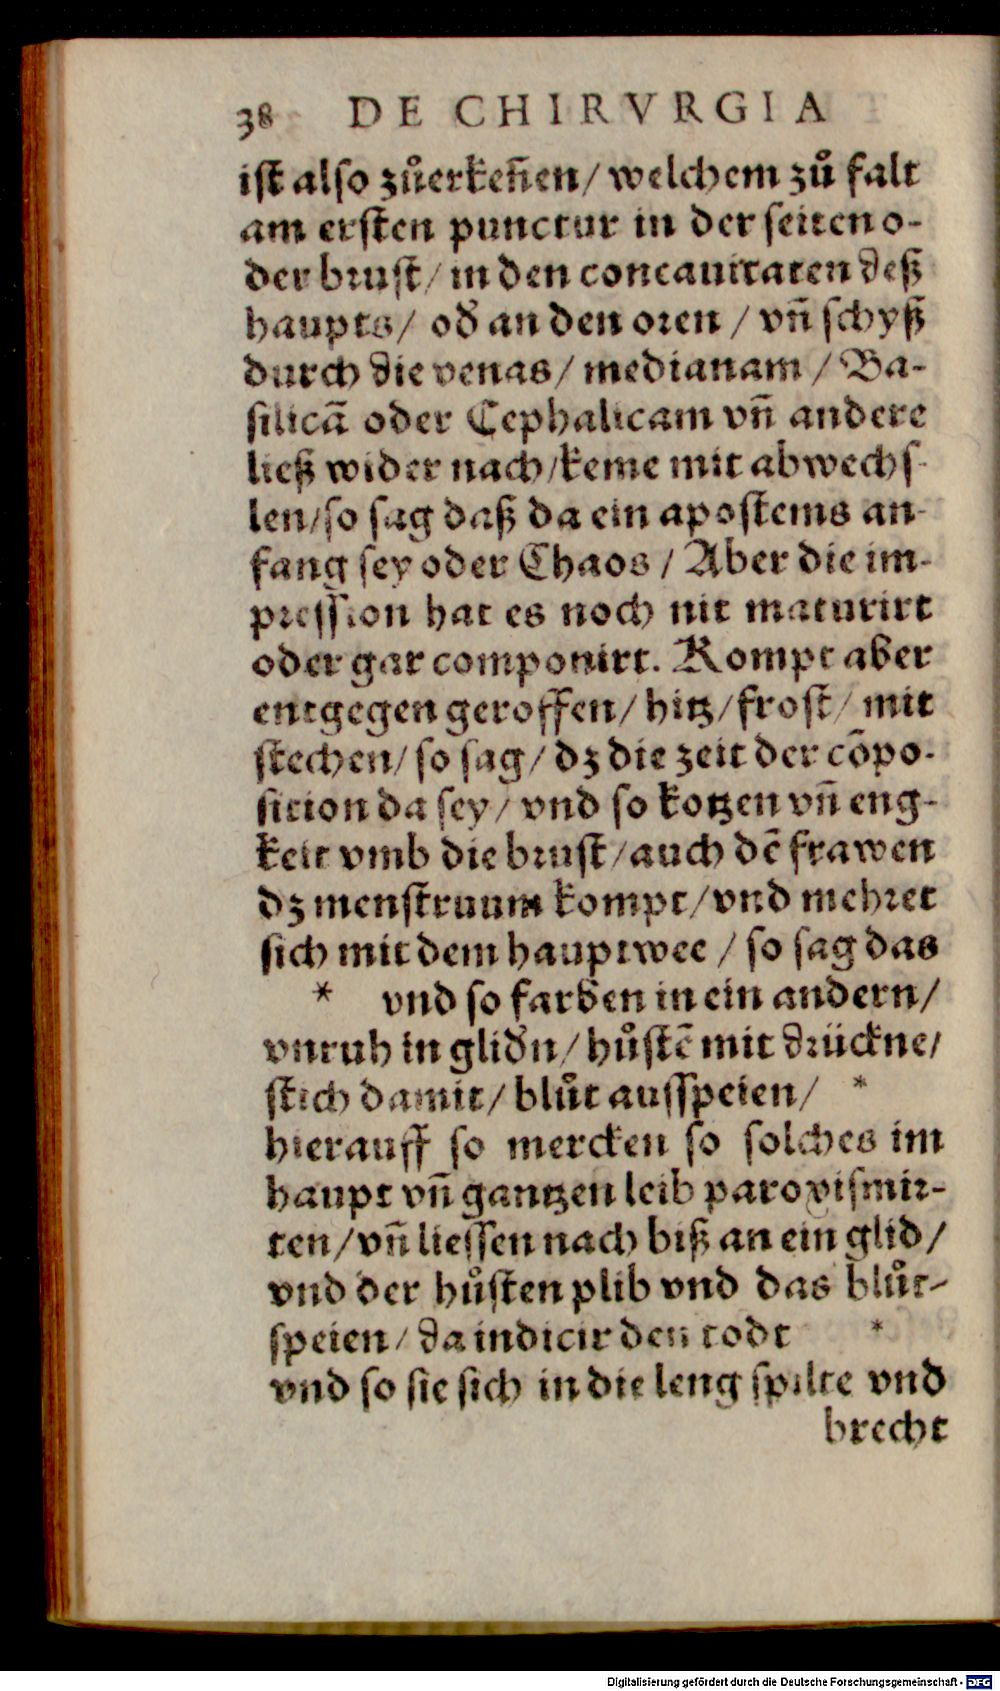 38 DE CHIRVRGIA
ist also zůerkeñen/ welchem zů falt
am ersten punctur in der seiten o-
der brust/ in den concauitaten deß
haupts/ oď an den oren / vñ schyß
durch die venas/ medianam / Ba-
silicã oder Cephalicam vñ andere
ließ wider nach/keme mit abwechs-
len/so sag daß da ein apostems an-
fang sey oder Chaos / Aber die im-
pression hat es noch nit maturirt
oder gar componirt. Kompt aber
entgegen geroffen/ hitz/frost/ mit
stechen/ so sag/ dz die zeit der cõpo-
sition da sey/ vnd so kotzen vñ eng-
keit vmb die brust/auch dẽ frawen
dz menstruum kompt/vnd mehret
sich mit dem hauptwee / so sag das
* vnd so farben in ein andern/
vnruh in gliďn/ hůstẽ mit drückne/
stich damit/ blůt ausspeien/ *
hierauff so mercken so solches im
haupt vñ gantzen leib paroxismir-
ten/vñ liessen nach biß an ein glid/
vnd der hůsten plib vnd das blůt-
speien/ da indicir den todt *
vnd so sie sich in die leng spilte vnd
brecht
Digitalisierung gefördert durch die Deutsche Forschungsgemeinschaft - DFG